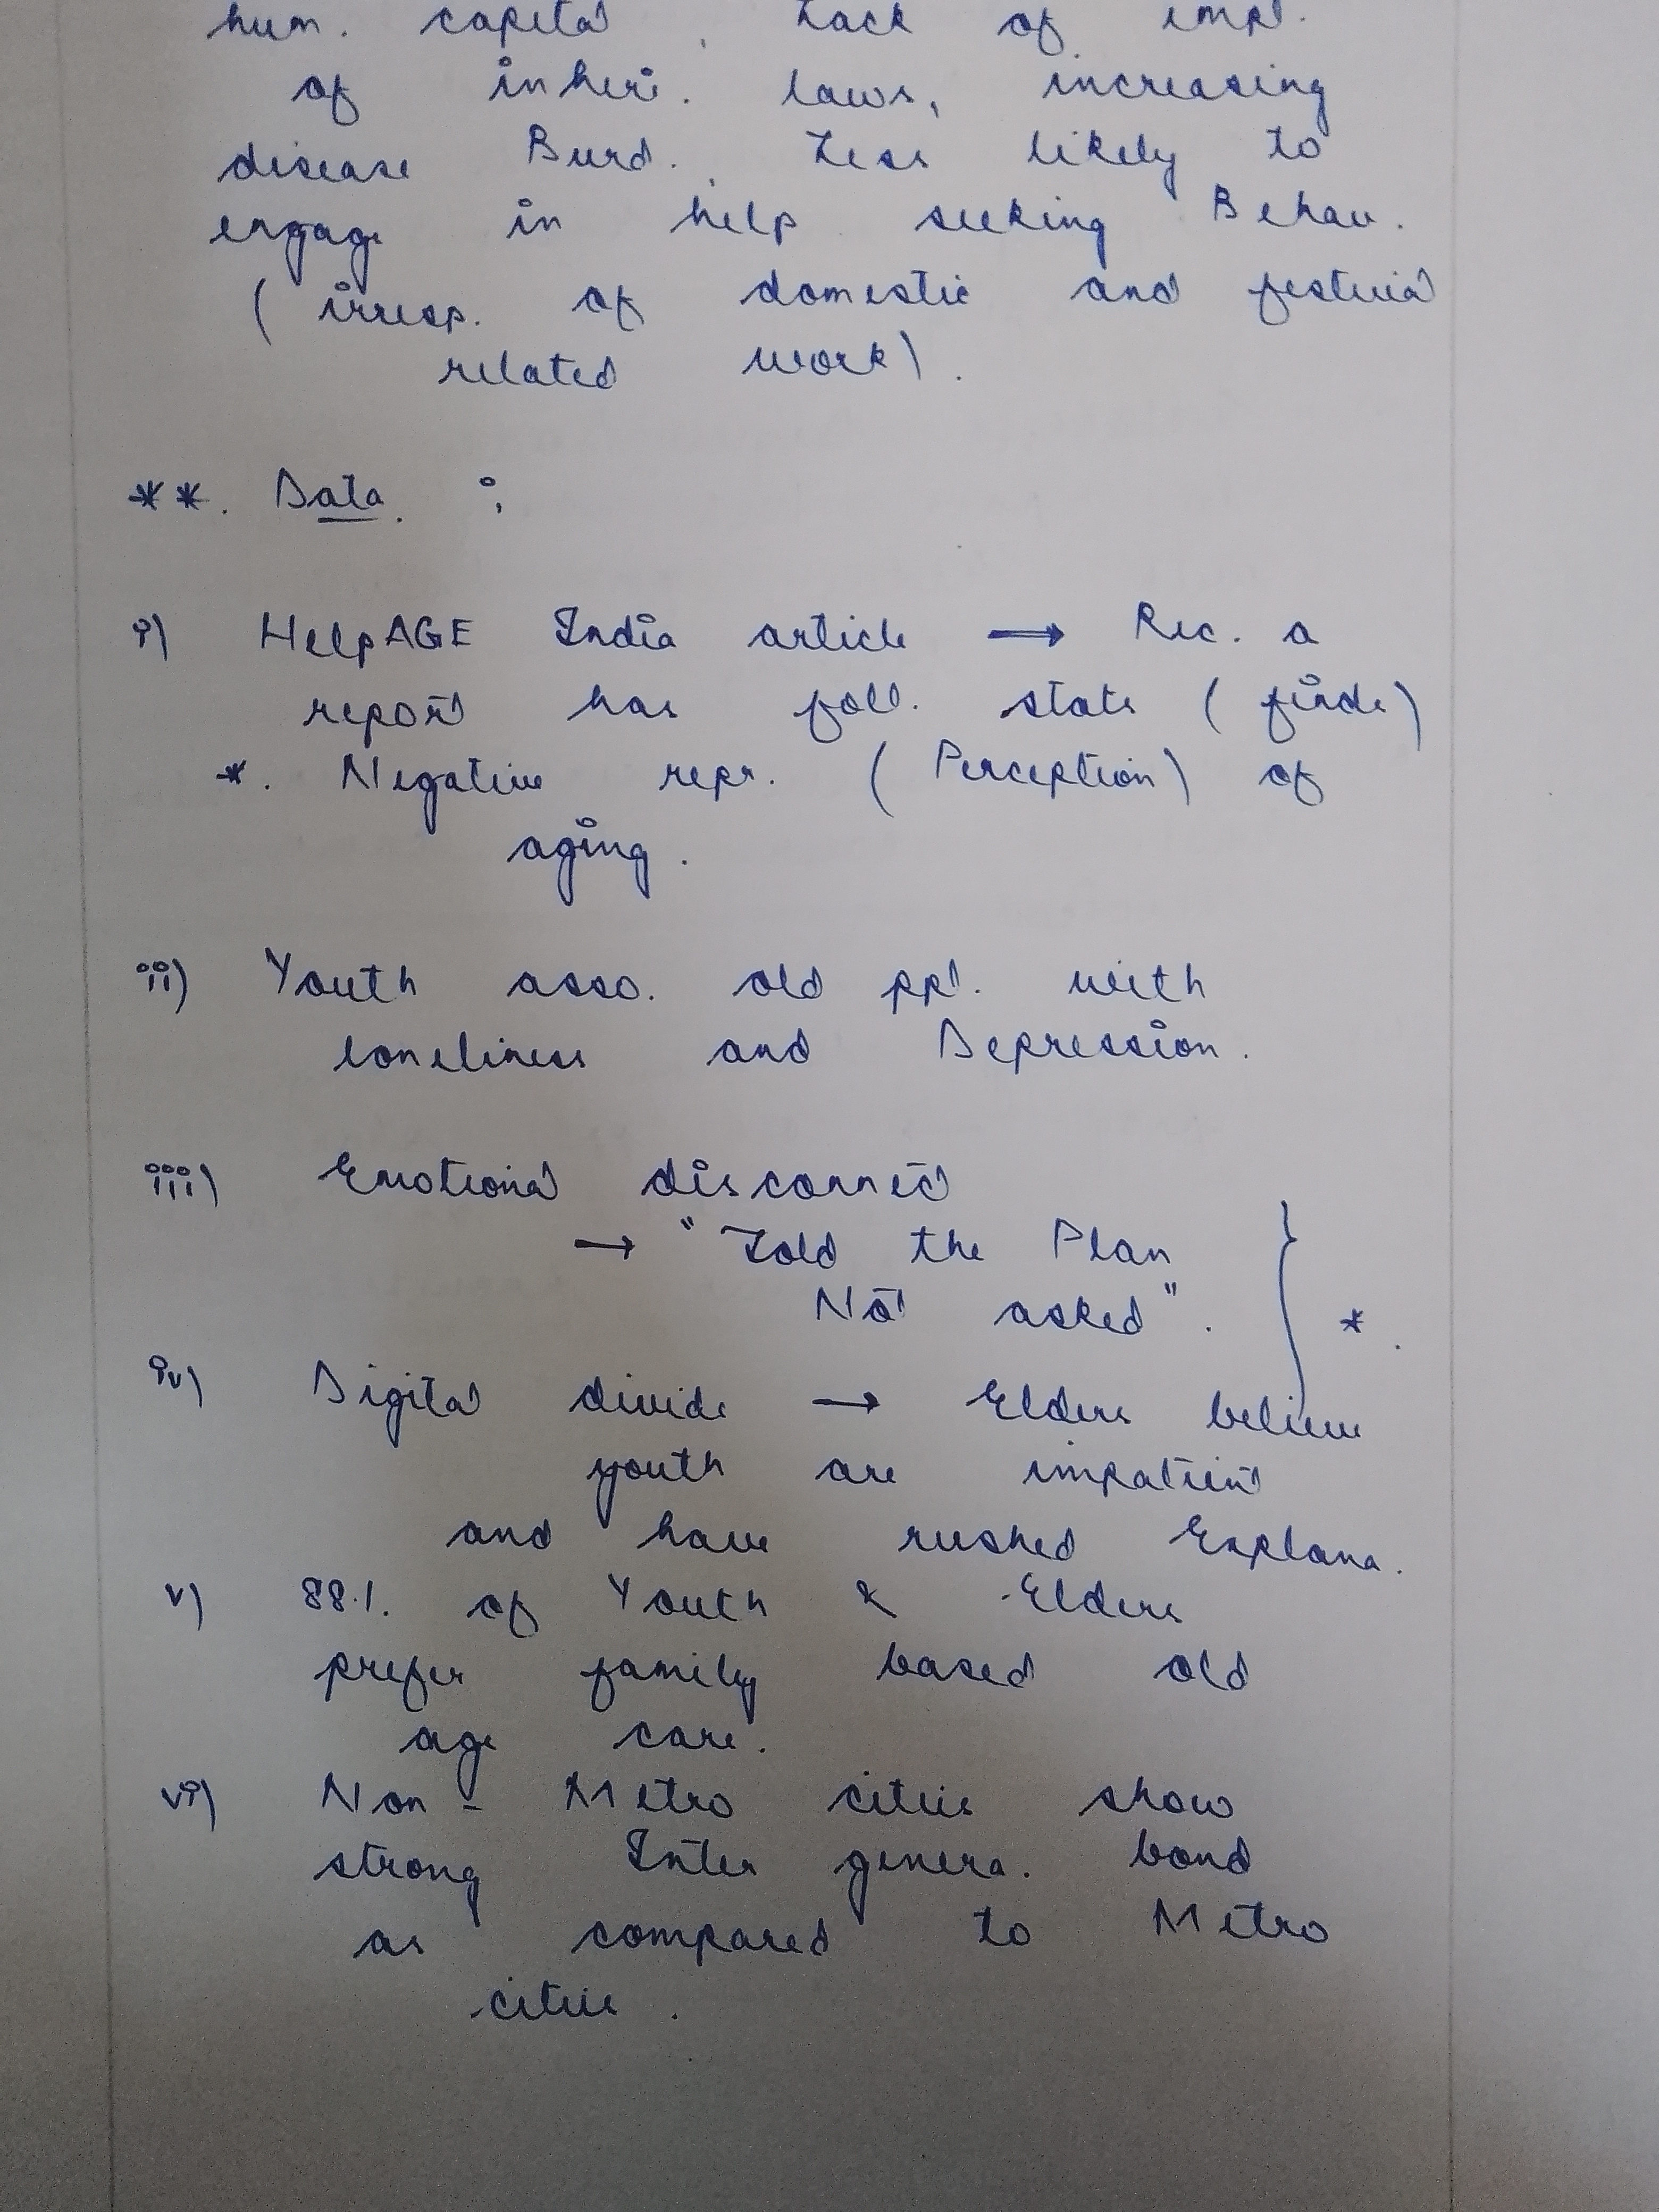 hum. capital, Lack of impl.
of inheri. laws, increasing
disease Burd., Less likely to
engage in help seeking Behav.
( irresp. of domestic and festival
related work).
**. Data. :
i) HelpAGE India article → Rec. a
report has foll. state ( finds )
*. Negative repr. ( Perception) of
aging.
ii) Youth asso. old ppl. with
loneliness and Depression.
iii) Emotional disconnect
→ "Told the Plan
Not asked". } *.
iv) Digital divide → Elders believe
youth are impatient
and have rushed Explana.
v) 88%. of Youth & Elders
prefer family based old
age care.
vi) Non - Metro cities show
strong Inter genera. bond
as compared to Metro
cities.